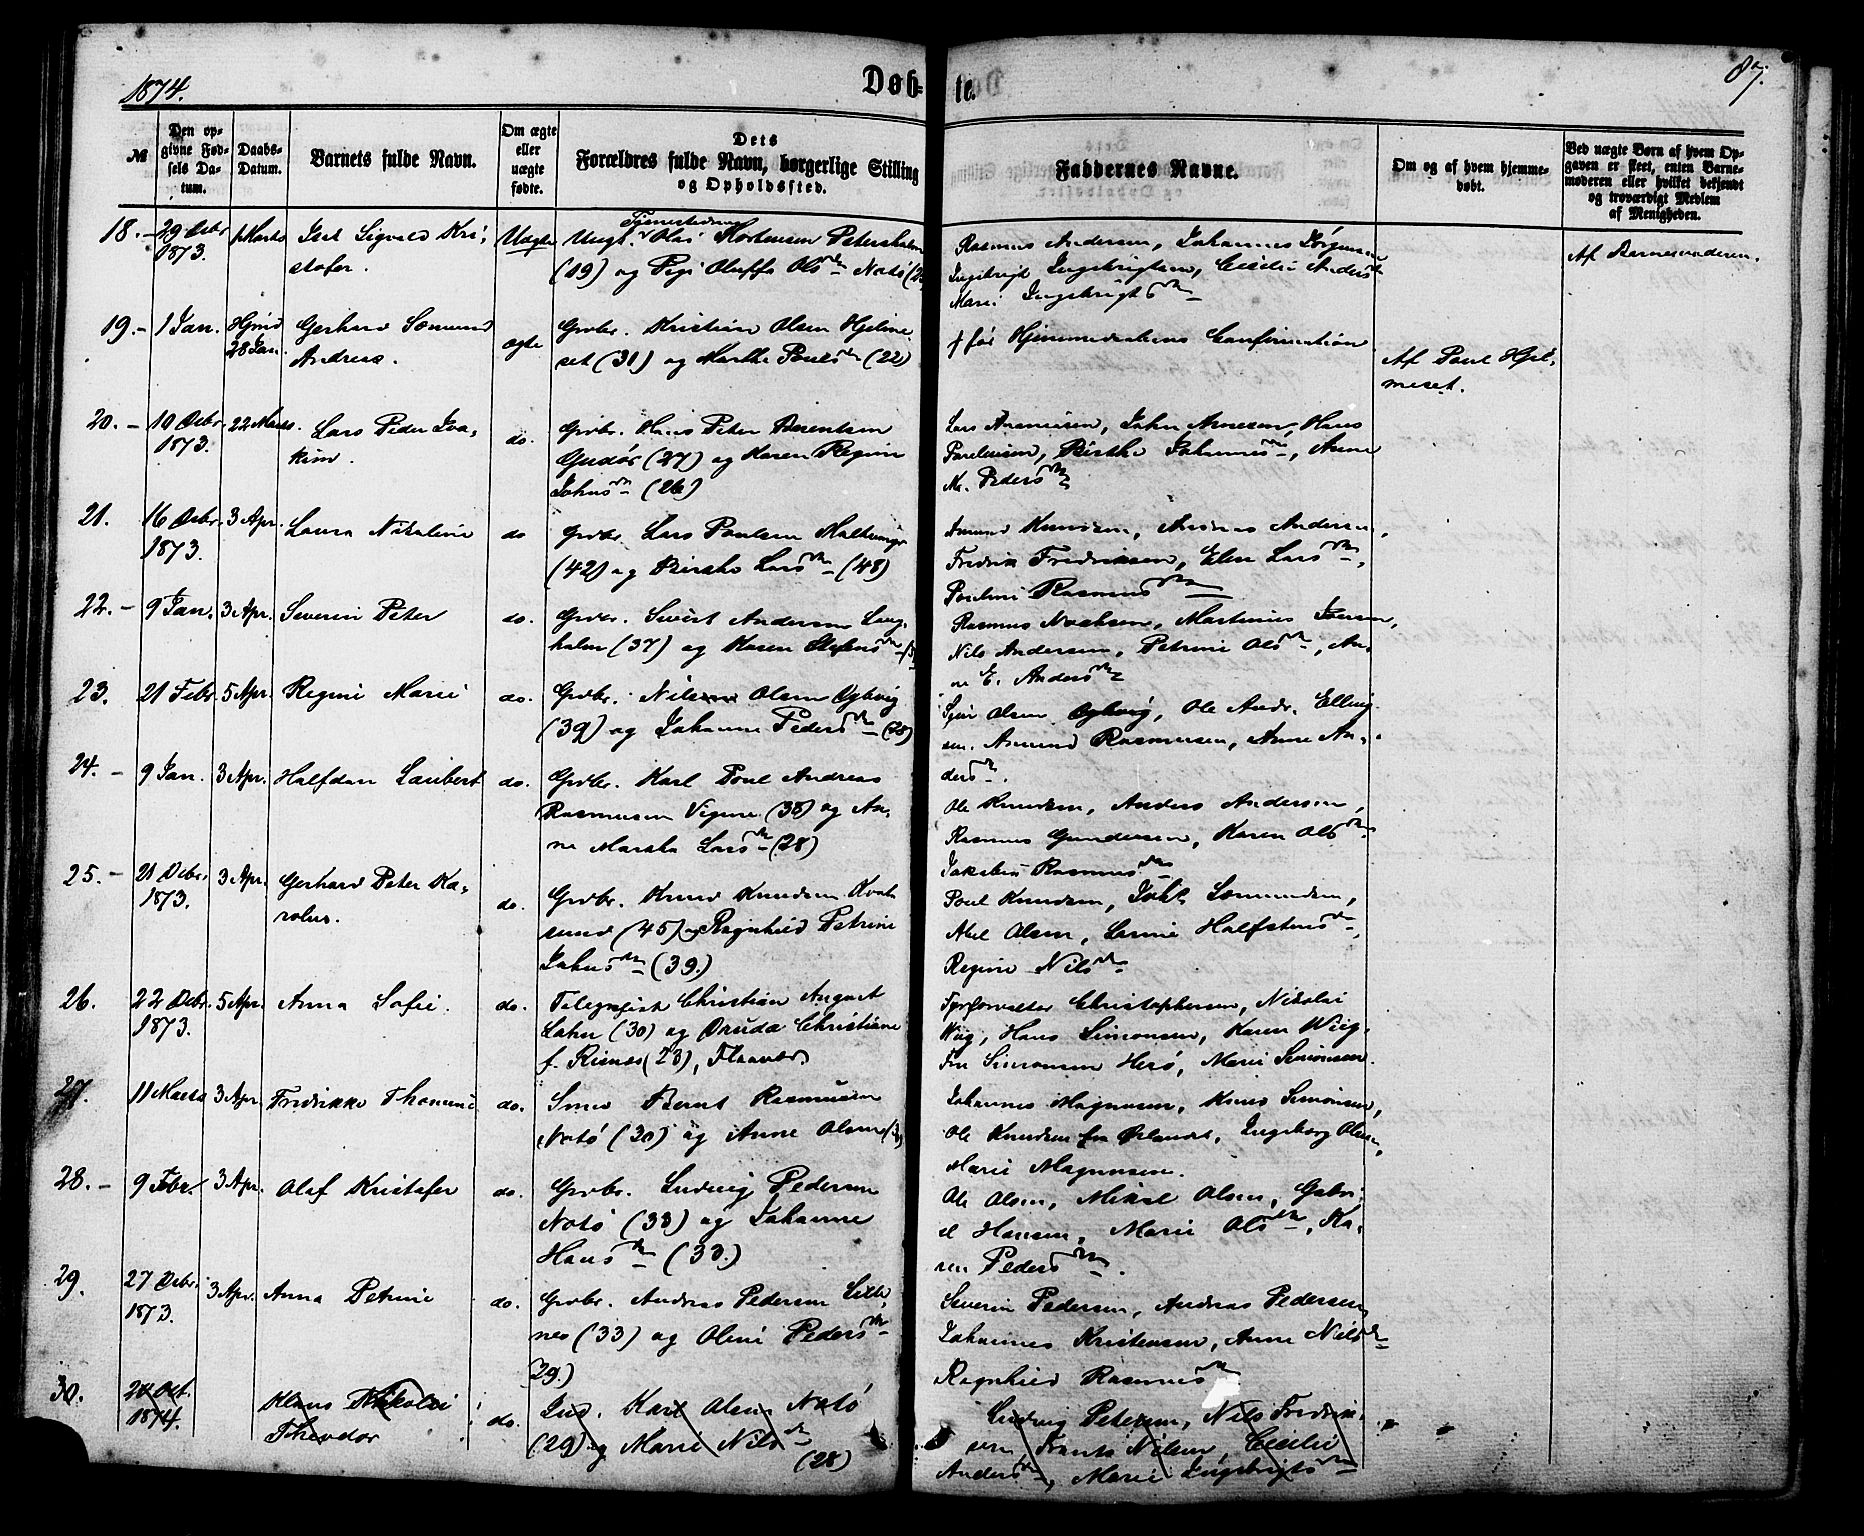 1874.
Døb-
te.
87.
№
Den op-
givne Fød-
sels Da-
tum.
Daabs-
Datum.
Barnets fulde Navn.
Om ægte
eller
uægte
fødte.
Dets
Forældres fulde Navn, borgerlige Stilling
og Opholdssted.
Faddernes Navne.
Om og af hvem hjemme-
døbt.
Ved uægte Børn af hvem Op-
gaven er skeet, enten Barne-
moderen eller hvilket bekjendt
og troværdigt Medlem
af Menigheden.
18. - 29 Decbr
1873.
Sigvald Kri-
stofer.
Uægte
Ungk. Olai Mortensen Petersholm
(19) og Pige Oluffa Olsdtr Notø
Rasmus Andersen, Johannes Jørgensen
Ingebrigt Ingebrigtsen, Cecilie Andersdtr
Marie Ingebrigtsdtr
Af Barnemoderen.
19. - 1 Jan.
Hjmd
28 Jan.
Gerhard Sæmund
Andreas.
ægte
Grbr. Kristian Olsen Hjelme
set (31) og Marthe Poulsdtr (22)
† før Hjemmedaabens Confirmation
Af Poul Hjel-
meset.
20. - 10 Decbr
1873.
22 Marts.
Lars Peder Joa-
kim.
do.
Grbr. Hans Peter Berentsen
Gudøs (27) og Karen Regine
Johnsdtr (26)
Lars Asmusen, John Arnesen, Hans
Poulsen, Birthe Johannesdtr, Anne
M. Pedersdtr
21.
16 Decbr
1873.
3 Apr.
Laura Nikoline
do
Grbr. Lars Poulsen
(42) og Birthe Larsdtr (48)
Amund Knudsen, Andreas Andersen,
Fredrik Fredriksen, Elen Larsdtr,
Pauline Rasmusdtr
22. - 9 Jan. 3 Apr.
Severin Peter
do.
Grbr. Sivert Andersen Lang-
holm (37) og Karen Stefensdtr
Rasmus Nochsen, Martinus Iversen,
Nils Andersen, Petrine Olsdtr, An-
ne E. Andersdtr
23.
21 Febr. 5 Apr.
Regine Marie
do.
Grbr. Nils Olsen Dybvig
(39) og Johanne Pedersdtr (28)
Sjur Olsen Dybvig, Ole Andr. Elling-
sen. Amund Rasmussen, Anne An-
dersdtr.
24. - 9 Jan. 3 Apr.
Halfdan Laubert
do.
Grbr. Karl Poul Andreas
Rasmussen Vigene (38) og An-
ne Martha Larsdtr (28)
Ole Knudsen, Anders Andersen,
Rasmus Gundersen, Karen Olsdtr
Jakobea Rasmusdtr
25. - 21 Decbr.
1873.
3 Apr.
Gerhard Peter Ka-
rolus.
do.
Grbr. Knud Knudsen Kvalø
sund (45) og Ragnhild Petrine
Johnsdtr (39.)
Poul Knudsen, Sæmundsen,
Abel Olsen, Larine Halfstensdtr,
Regine Nilsdtr
26.
22 Decbr.
1873.
5 Apr.
Anna Sofie.
do.
Telegrafist Christian August
Lahn (30) og Druda Christiane
f. Risnes (23), Flaavær.
Fyrforvalter Christophersen, Nikolai
Wiig, Hans Simonsen, Karen Wiig
Fru Simonsen Herø, Marie Simonsen.
27.
11 Marts 3 Apr.
Fredrikke Thomine
do.
Smed Bernt Rasmussen
Notø (30) og Anne Olsen
Johannes Magnusen, Knud Simonsen,
Ole Knudsen fra Ørlandet, Ingeborg Olsen,
Marie Magnusen.
28. - 9 Febr. 3 Apr.
Olaf Kristofer
do.
Grbr. Ludvig Pedersen
Notø (33) og Johanne
Hansdtr (33.)
Ole Olsen, Mikal Olsen, Gabri-
el Hansen, Marie Olsdtr, Ka-
ren Pedersdtr.
29.
27 Decbr.
1873.
3 Apr.
Anna Petrine
do.
Grbr. Andreas Pedersen
nes (33) og Oline Pedersdtr
(29.)
Severin Pedersen, Andreas Pedersen
Johannes Kristensen, Anne Nilsdtr
Ragnhild Rasmusdtr
30.
24 Oct.
1874.
Klaus Nikolai
Theodor
do.
Ind. Karl Olsen Notø
(29) og Marie Nilsdtr
(28)
Ludvig Petersen, Nils Fredrik-
sen, Frants Nilsen, Cecilie
Andersdtr, Marie Ingebrigtsdtr